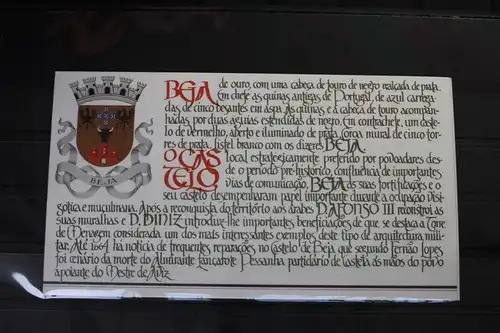 BEJA de ouro, com uma cabeça de touro de negro realçada de prata.
Em chefe as quinas antigas de Portugal, de azul carrega-
das de cinco besantes em aspa e a cabeça de touro acompan-
hada por duas águias estendidas de negro. Em contrachefe, um caste-
lo de vermelho, aberto e iluminado de prata. Coroa mural de cinco tor-
res de prata. Listel branco com os dizeres BEJA.
O CASTELO local estrategicamente preferido por povoadores des-
de o período pré-histórico, confluência de importantes
vias de comunicação, BEJA, as suas fortificações e o
seu castelo desempenharam papel importante durante a ocupação visi-
gótica e muçulmana. Após a reconquista do território aos árabes D. AFONSO III reconstrói as
suas muralhas e D. DINIZ introduz-lhe importantes beneficiações de que se destaca a Torre
de Menagem considerada um dos mais interessantes exemplos deste tipo de arquitectura mili-
tar. Até 1664 há notícia de frequentes reparações no Castelo de Beja que segundo Fernão Lopes
foi cenário da morte do Almirante Lançarote Pessanha partidário de Castela às mãos do povo
apoiante do Mestre de Aviz.
BEJA